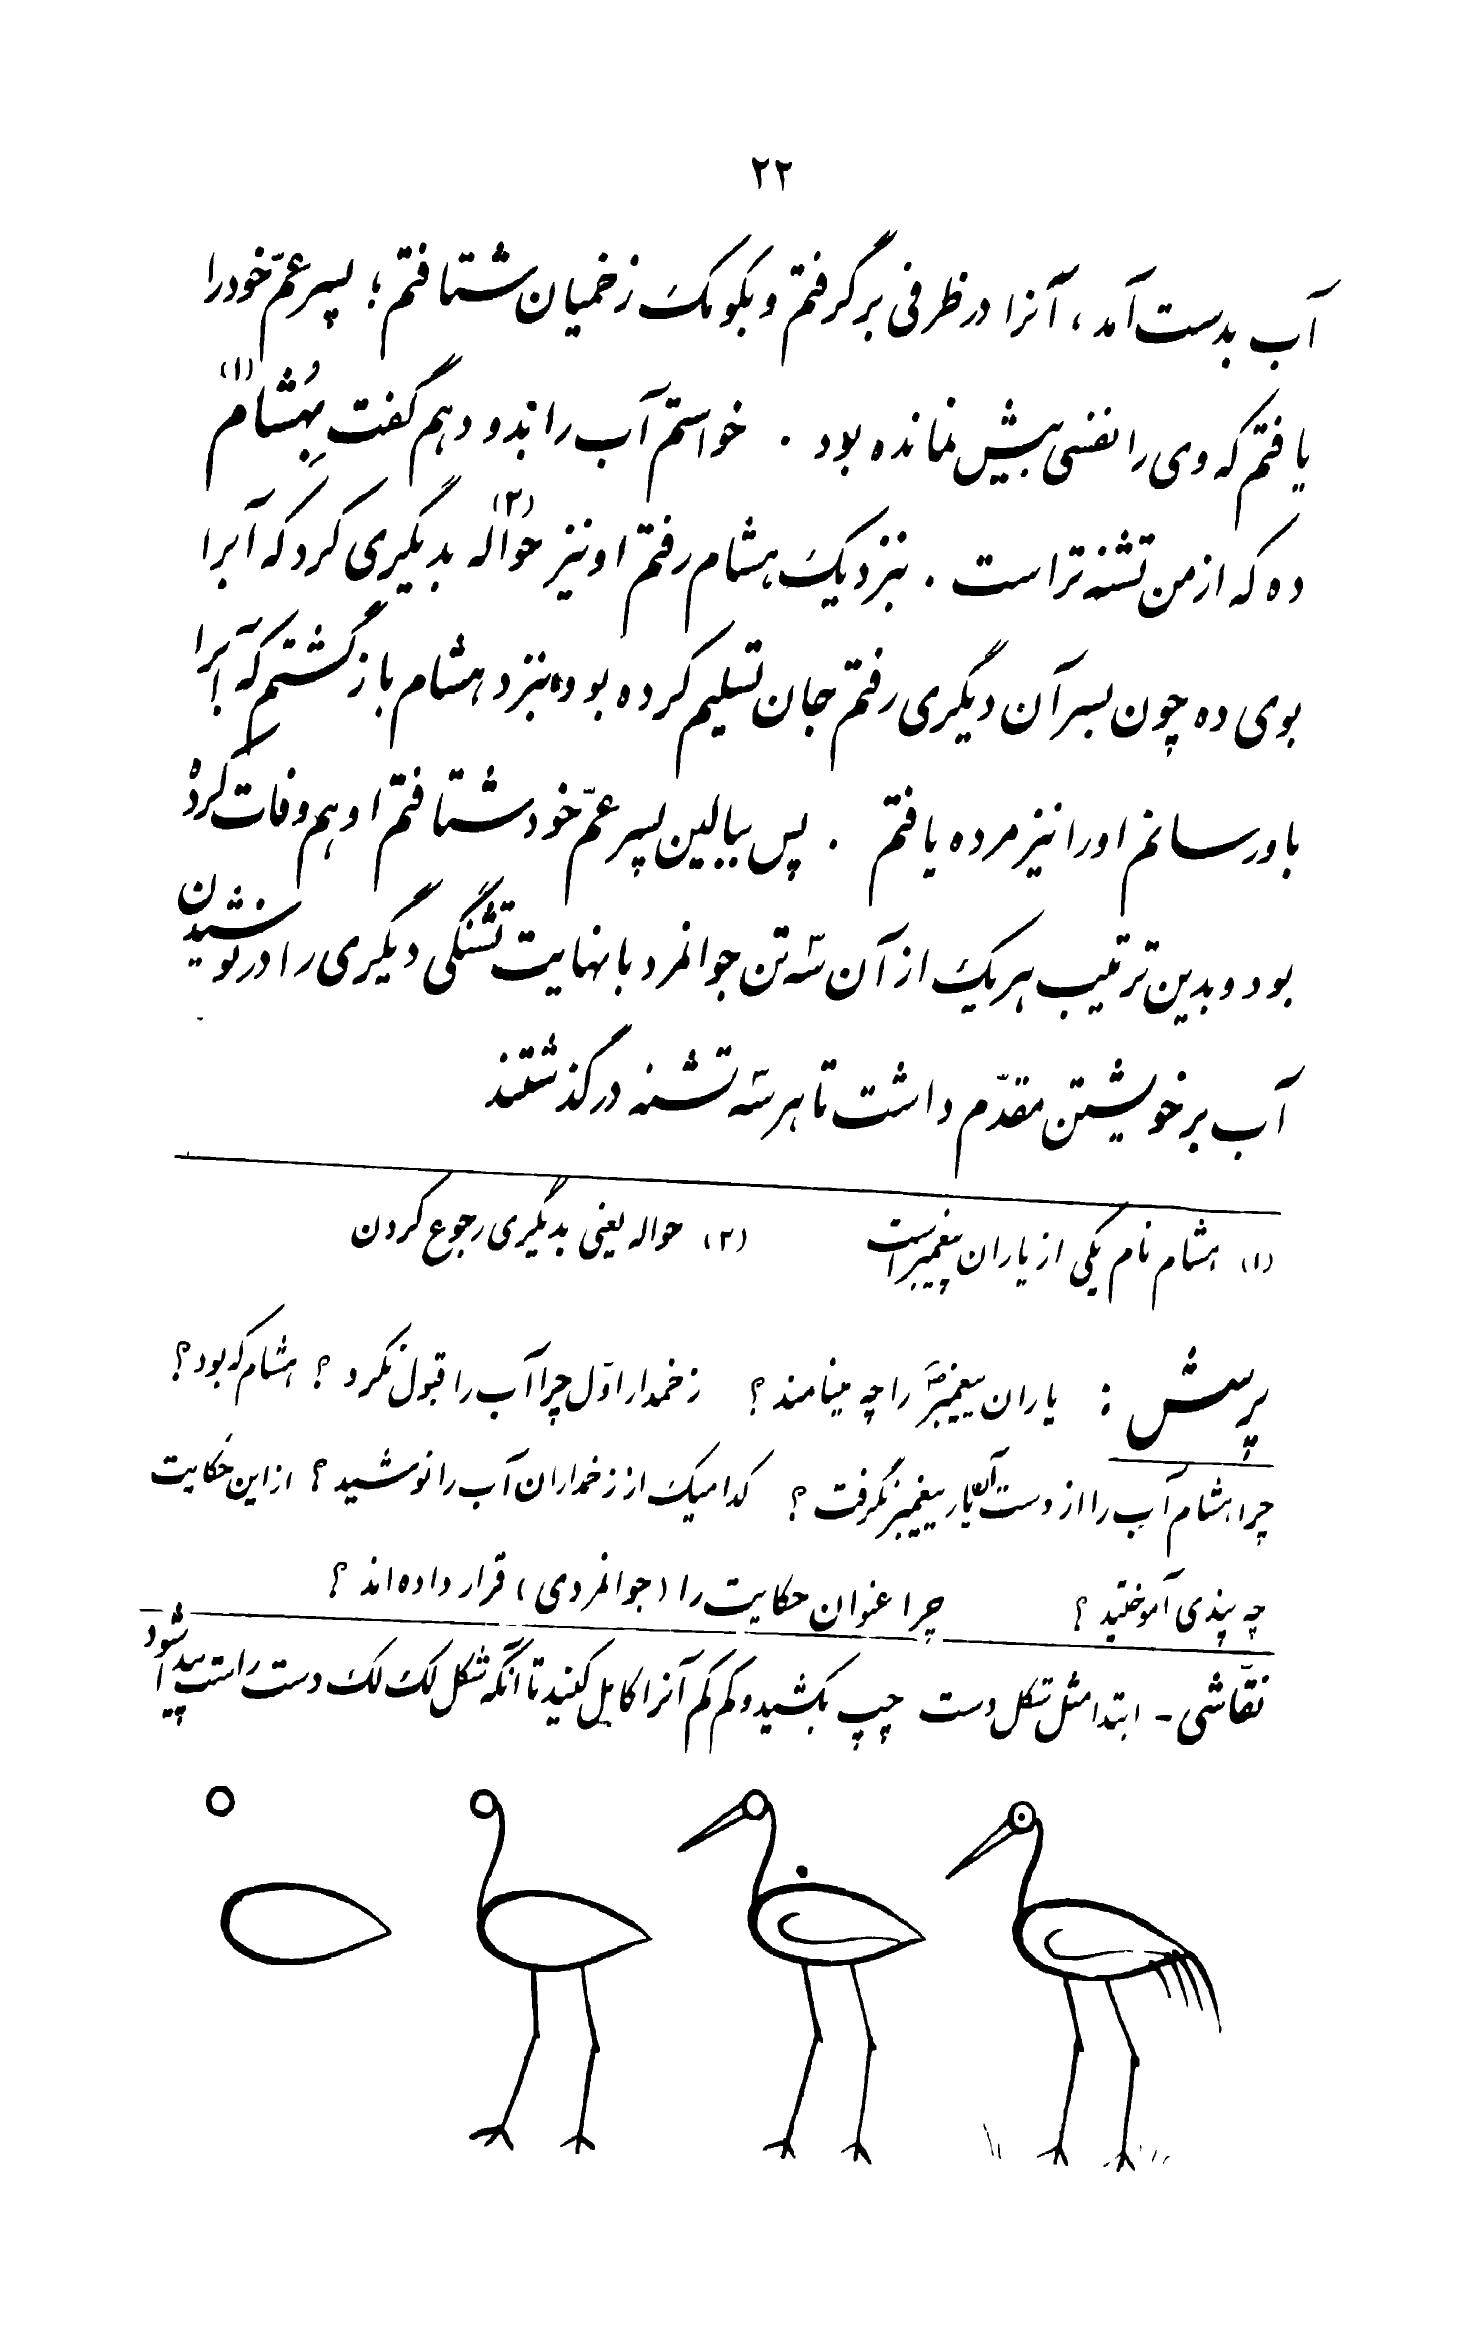 ۲۲
آب بدست آمد ، آنرا در ظرفی بر گرفتم و بکومک زخمیان شتافتم ؛ پسر عمّ خود را
یافتم که وی را نفسی بیش نمانده بود . خواستم آب را بدو دهم گفت بِهُشام (۱)
ده که از من تشنه تر است . نزدیک هشام رفتم او نیز حواله (۲) بدیگری کرد که آبرا
بوی ده چون بسر آن دیگری رفتم جان تسلیم کرده بود، نزد هشام باز گشتم که آبرا
باو رسانم او را نیز مرده یافتم . پس ببالین پسر عمّ خود شتافتم او هم وفات کرده
بود و بدین ترتیب هر یک از آن سه تن جوانمرد با نهایت تشنگی دیگری را در نوشیدن
آب بر خویشتن مقدّم داشت تا هر سه تشنه در گذشتند
(۱) هشام نام یکی از یاران پیغمبر است (۲) حواله یعنی بدیگری رجوع کردن
پرسش : یاران پیغمبرؐ را چه مینامند ؟ زخمدار اوّل چرا آب را قبول نکرد ؟ هشام که بود ؟
چرا هشام آب را از دست آن یار پیغمبر نگرفت ؟ کدامیک از زخمداران آب را نوشید ؟ از این حکایت
چه پندی آموختید ؟ چرا عنوان حکایت را (جوانمردی) قرار داده اند ؟
نقّاشی - ابتدا مثل شکل دست چپ بکشید و کم کم آنرا کامل کنید تا آنگه شکل لک لک دست راست پیدا شود